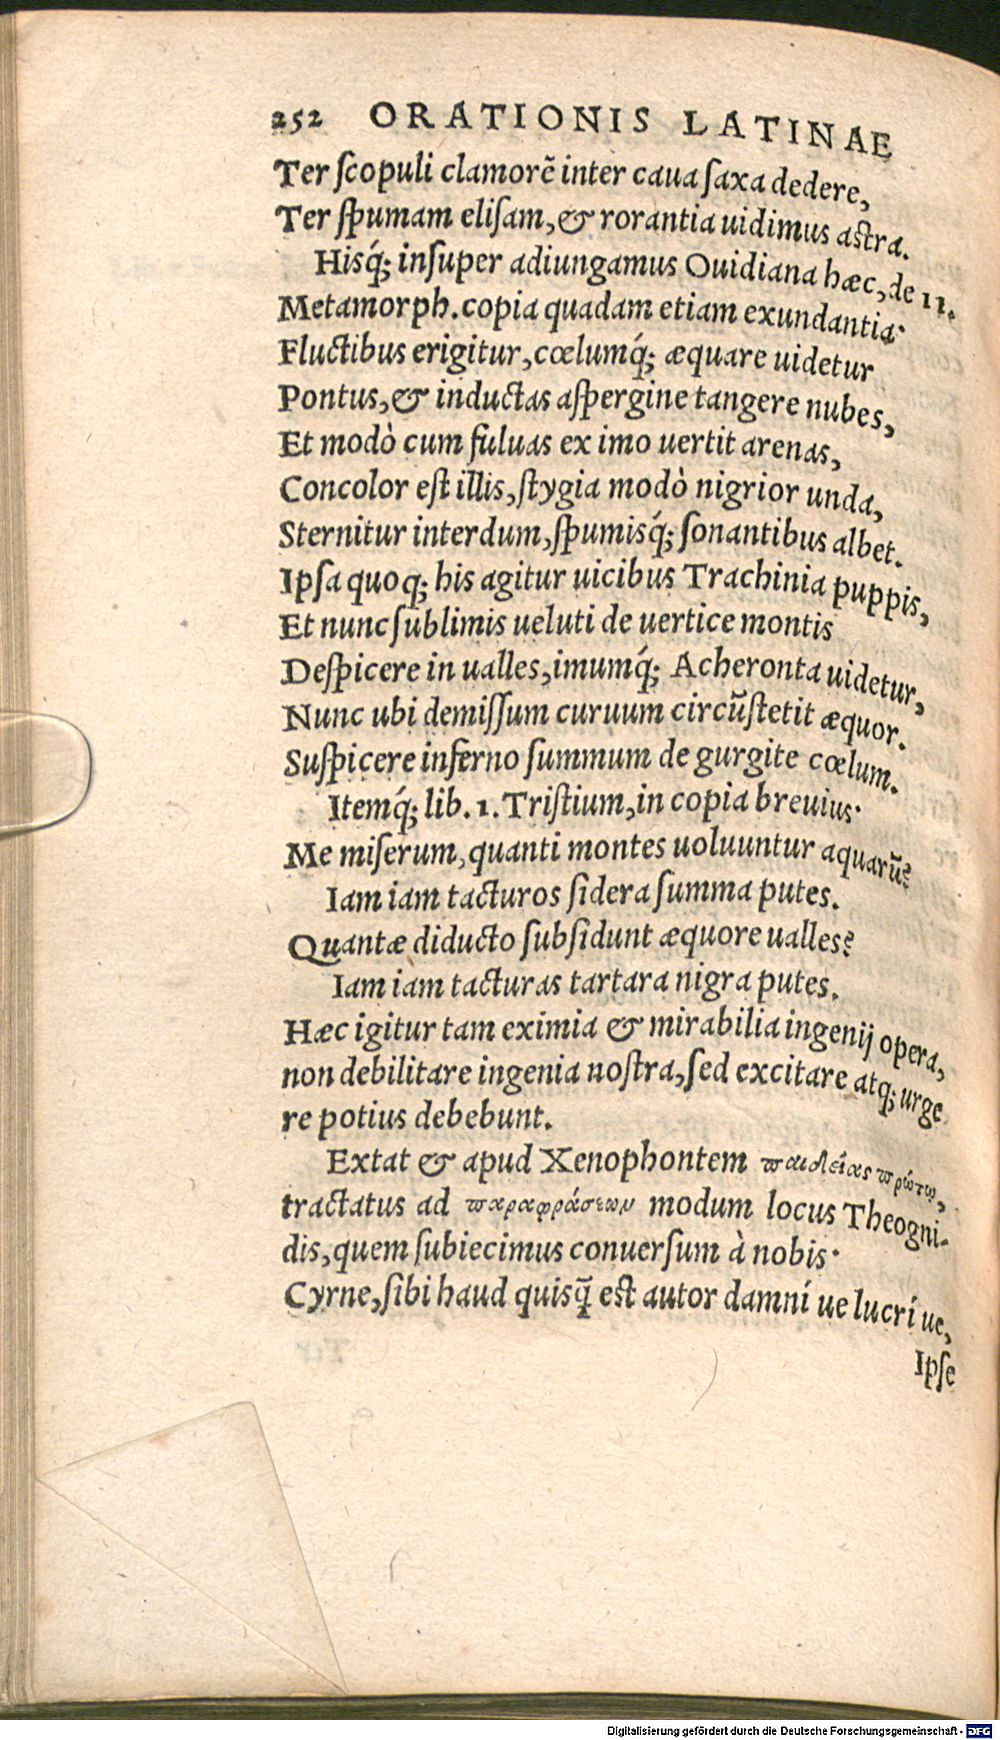 252 ORATIONIS LATINAE
Ter ſcopuli clamorē inter caua ſaxa dedere,
Ter ſpumam eliſam, & rorantia uidimus aſtra.
Hisq́; inſuper adiungamus Ouidiana hæc, de 11.
Metamorph. copia quadam etiam exundantia·
Fluctibus erigitur, cœlumq́; æquare uidetur
Pontus, & inductas aſpergine tangere nubes,
Et modò cum fuluas ex imo uertit arenas,
Concolor eſt illis, ſtygia modò nigrior unda,
Sternitur interdum, ſpumisq́; ſonantibus albet.
Ipſa quoq; his agitur uicibus Trachinia puppis,
Et nunc ſublimis ueluti de uertice montis
Deſpicere in ualles, imumq́; Acheronta uidetur,
Nunc ubi demiſſum curuum circūſtetit æquor.
Suſpicere inferno ſummum de gurgite cœlum.
Itemq́; lib. 1. Triſtium, in copia breuius·
Me miſerum, quanti montes uoluuntur aquarū?
Iam iam tacturos ſidera ſumma putes.
Quantæ diducto ſubſidunt æquore ualles?
Iam iam tacturas tartara nigra putes.
Hæc igitur tam eximia & mirabilia ingenij opera,
non debilitare ingenia noſtra, ſed excitare atq; urge
re potius debebunt.
Extat & apud Xenophontem παιδείας πρώτῳ,
tractatus ad παραφράσεων modum locus Theogni-
dis, quem ſubiecimus conuerſum à nobis·
Cyrne, ſibi haud quisq̄ eſt autor damní ue lucrí ue,
Ipſe
Digitalisierung gefördert durch die Deutsche Forschungsgemeinschaft - DFG